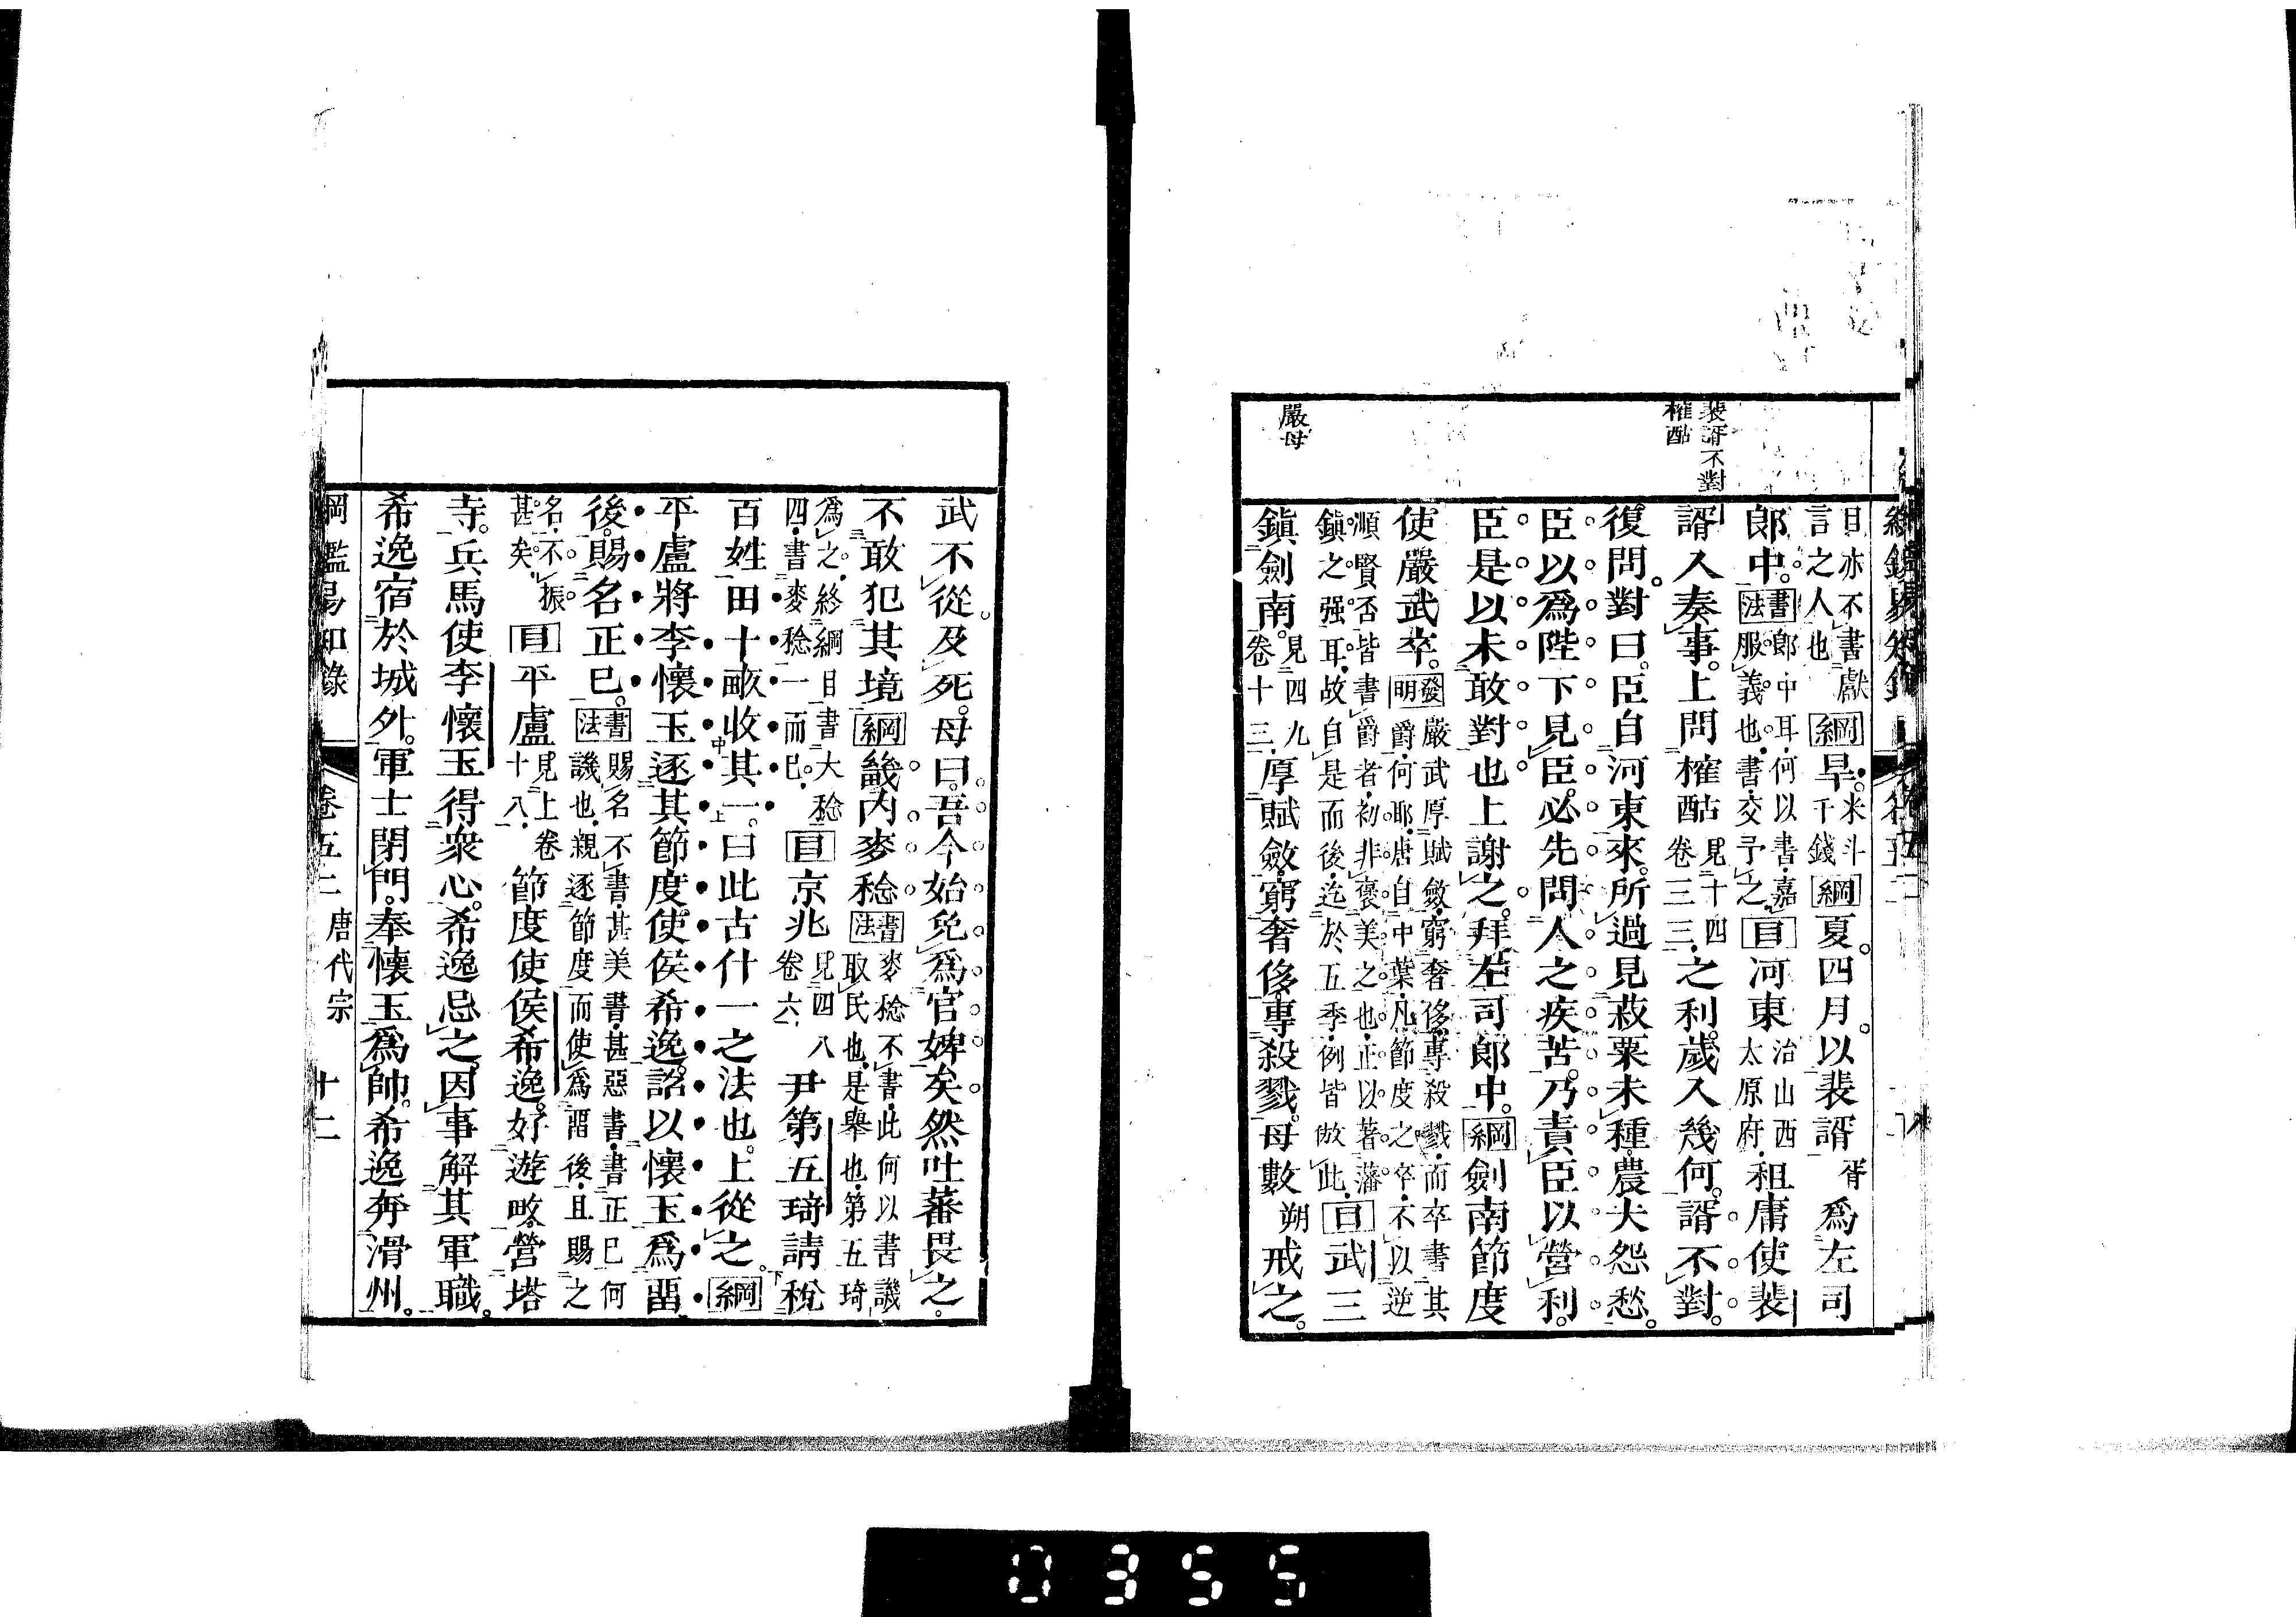 綱鑑易知錄 卷五二
裴諝不對
榷酤
嚴母
目亦不書獻言之人也綱旱。米斗千錢綱夏。四月。以裴諝胥爲左司
郎中。書法郎中耳何以書嘉服義也書交予之目河東治山西太原府租庸使裴
諝入奏事。上問榷酤見十四卷三三之利。歲入幾何。諝不對。
復問。對曰。臣自河東來。所過見菽粟未種。農夫怨愁。
臣以爲陛下見臣。必先問人之疾苦。乃責臣以營利。
臣是以未敢對也。上謝之。拜左司郎中。綱劍南節度
使嚴武卒。發明嚴武厚賦斂窮奢侈專殺戮而卒書其爵何耶唐自中葉凡節度之卒不以逆
順賢否皆書爵者初非褒美之也正以著藩鎮之强耳故自是而後迄於五季例皆倣此目武三
鎮劍南。見四九卷十三厚賦斂。窮奢侈。專殺戮。母數朔戒之。
武不從。及死。母曰。吾今始免爲官婢矣。然吐蕃畏之。
不敢犯其境綱畿內麥稔書法麥稔不書此何以書譏取民也是舉也第五琦
爲之終綱目書大稔四書麥稔一而已目京兆見四八卷六尹第五琦請稅
百姓田十畝收其一。曰此古什一之法也。上從之。綱
平盧將李懷玉逐其節度使侯希逸。詔以懷玉爲畱
後。賜名正己。書法賜名不書甚美書甚惡書書正己何譏也親逐節度而使爲畱後且賜之
名不振甚矣目平盧見上卷十八節度使侯希逸。好遊畋。營塔
寺。兵馬使李懷玉得衆心。希逸忌之。因事解其軍職。
希逸宿於城外。軍士閉門。奉懷玉爲帥。希逸奔滑州。
綱鑑易知錄 卷五二 唐代宗 十二
0355